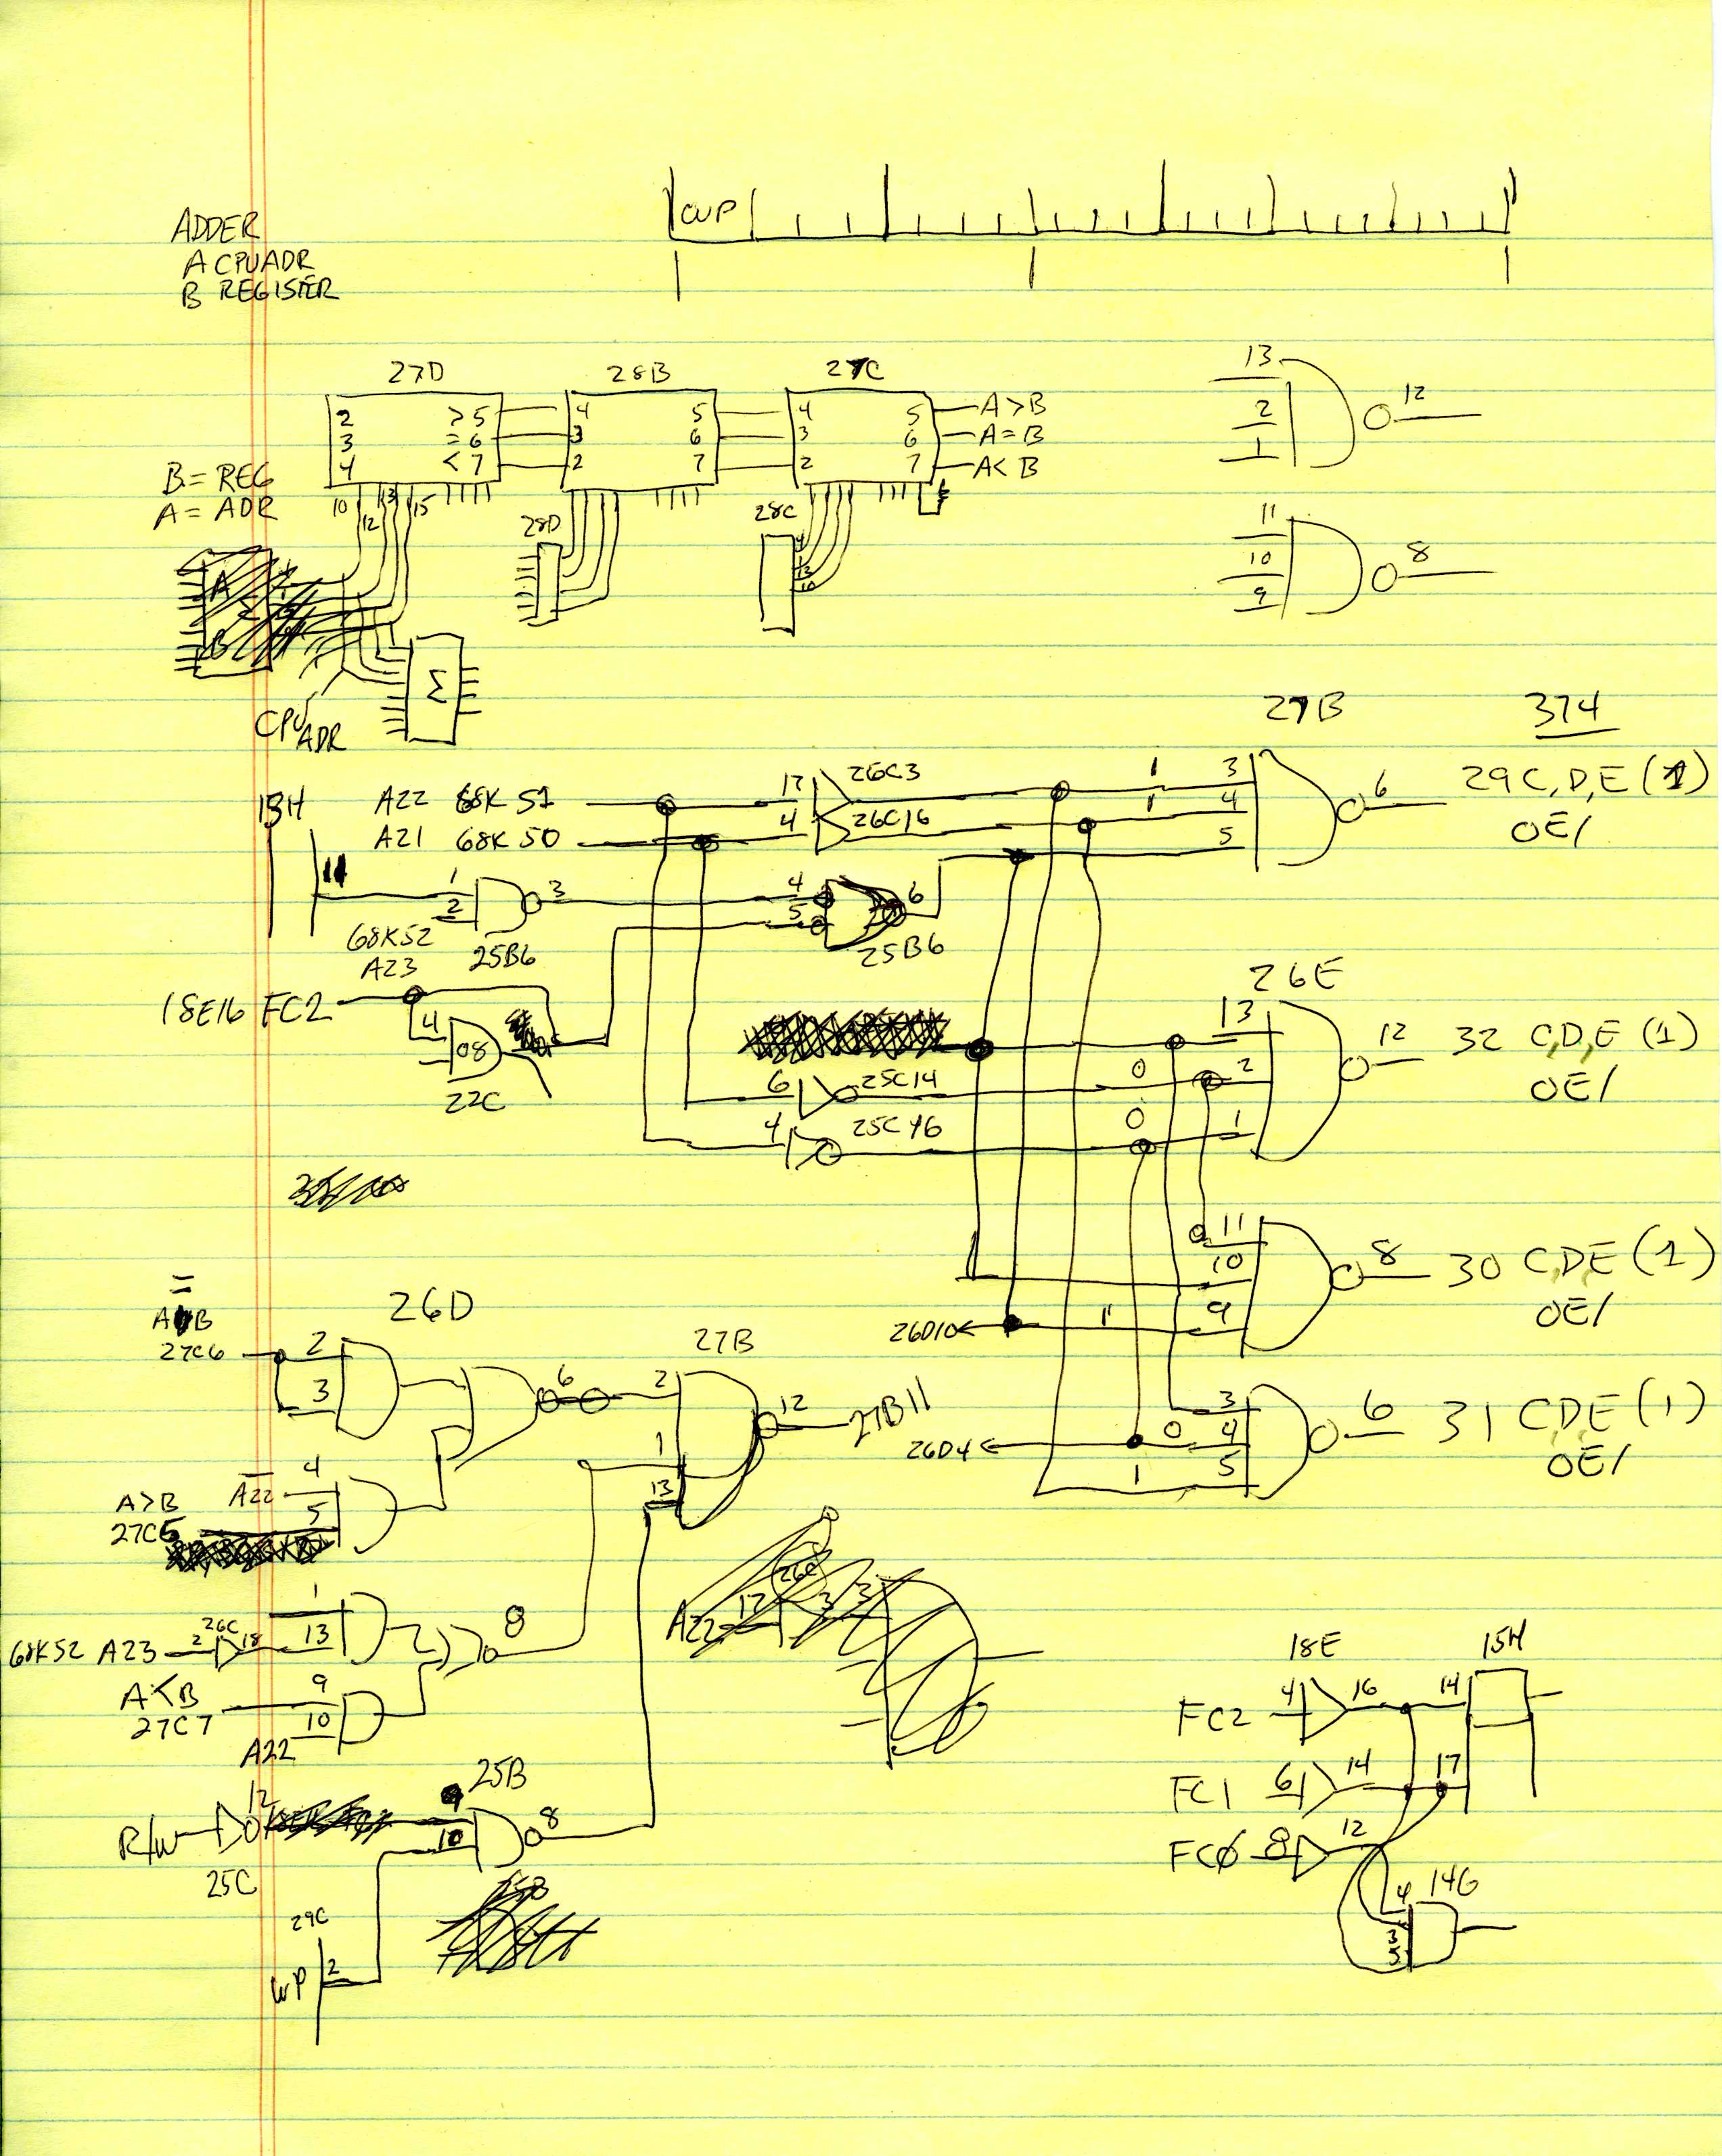 ADDER
A CPUADR
B REGISTER
27D
2 >5
3 =6
4 <7
10 12 13 15
28B
4 5
3 6
2 7
27C
4 5
3 6
2 7
A>B
A=B
A<B
B=REG
A=ADR
28D
28C
Σ
CPU ADR
13
2
1
12
11
10
9
8
27B
374
A22 68K 51
17
26C3
1
3
6
29 C,D,E (1)
OE/
A21 68K 50
4
26C16
1
4
5
11
1
2
3
68K52
A23
25B6
4
5
6
25B6
18E16 FC2
4
08
22C
26E
13
12
32 C,D,E (1)
OE/
6
25C14
0
2
4
0
1
11
10
9
8
30 CDE (1)
OE/
26D10
1
26D4
3
0 4
1 5
6
31 CDE (1)
OE/
=
27C6
26D
2
3
6
27B
2
1
13
12
27B11
A>B
27C5
A22
4
5
68K52 A23
2 26C 18
1
13
8
A<B
27C7
9
10
A22
R/W
12
25C
25B
9
10
8
29C
WP
2
A22 17
26C
3 3
18E
15H
FC2 4 16 14
FC1 6 14 17
FC0 8 12
14G
4
3
5